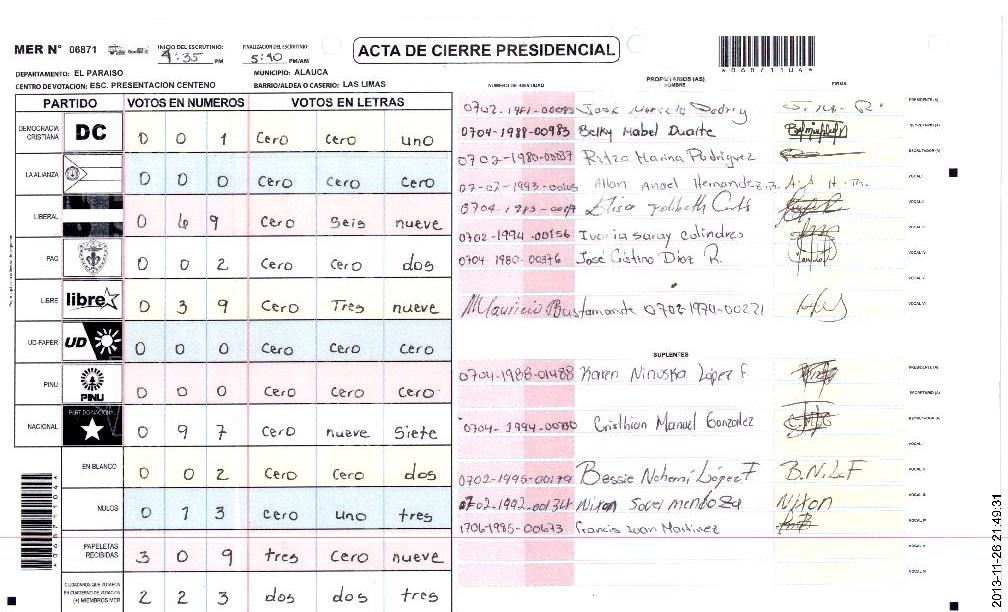 MER N° 06871
INICIO DEL ESCRUTINIO: 4:35 PM
FINALIZACION DEL ESCRUTINIO: 5:40 PM/AM
ACTA DE CIERRE PRESIDENCIAL
* 0 6 8 7 1 1 0 4 *
DEPARTAMENTO: EL PARAISO
MUNICIPIO: ALAUCA
CENTRO DE VOTACION: ESC. PRESENTACION CENTENO
BARRIO/ALDEA O CASERIO: LAS LIMAS
PARTIDO VOTOS EN NUMEROS VOTOS EN LETRAS
DEMOCRACIA CRISTIANA DC 0 0 1 Cero Cero uno
LA ALIANZA 0 0 0 Cero Cero Cero
LIBERAL 0 6 9 Cero Seis nueve
PAC 0 0 2 Cero Cero dos
LIBRE libre 0 3 9 Cero Tres nueve
UD-FAPER UD 0 0 0 Cero Cero Cero
PINU PINU 0 0 0 Cero Cero Cero
NACIONAL PARTIDO NACIONAL 0 9 7 Cero nueve Siete
EN BLANCO 0 0 2 Cero Cero dos
NULOS 0 1 3 Cero uno tres
PAPELETAS RECIBIDAS 3 0 9 tres Cero nueve
CIUDADANOS QUE VOTARON EN CUADERNO DE VOTACION (+) MIEMBROS MER 2 2 3 dos dos tres
PROPIETARIOS (AS)
NUMERO DE IDENTIDAD NOMBRE FIRMA
José PRESIDENTE (A)
0704-1988-00983 Belky Mabel Duarte SECRETARIO (A)
0702-1980-00037 Ritza Marina Rodriguez ESCRUTADOR (A)
07-02-1993-00105 Allan Angel Hernandez VOCAL I
VOCAL II
0702-1994-00156 Saray Colindres VOCAL III
0704-1980-00376 José Cistino Diaz R. VOCAL IV
VOCAL V
Mauricio Bustamante 0702-1970-00221 VOCAL VI
SUPLENTES
0704-1988-01488 Karen Ninoska López F. PRESIDENTE (A)
SECRETARIO (A)
Cristhian Manuel Gonzalez ESCRUTADOR (A)
VOCAL I
0702-1995-00179 Bessie Nohemí López F B.N.L.F VOCAL II
Nixon Mendoza Nixon VOCAL III
1706-1985-00673 Francis Juan Martinez VOCAL IV
VOCAL V
VOCAL VI
2013-11-26 21:49:31